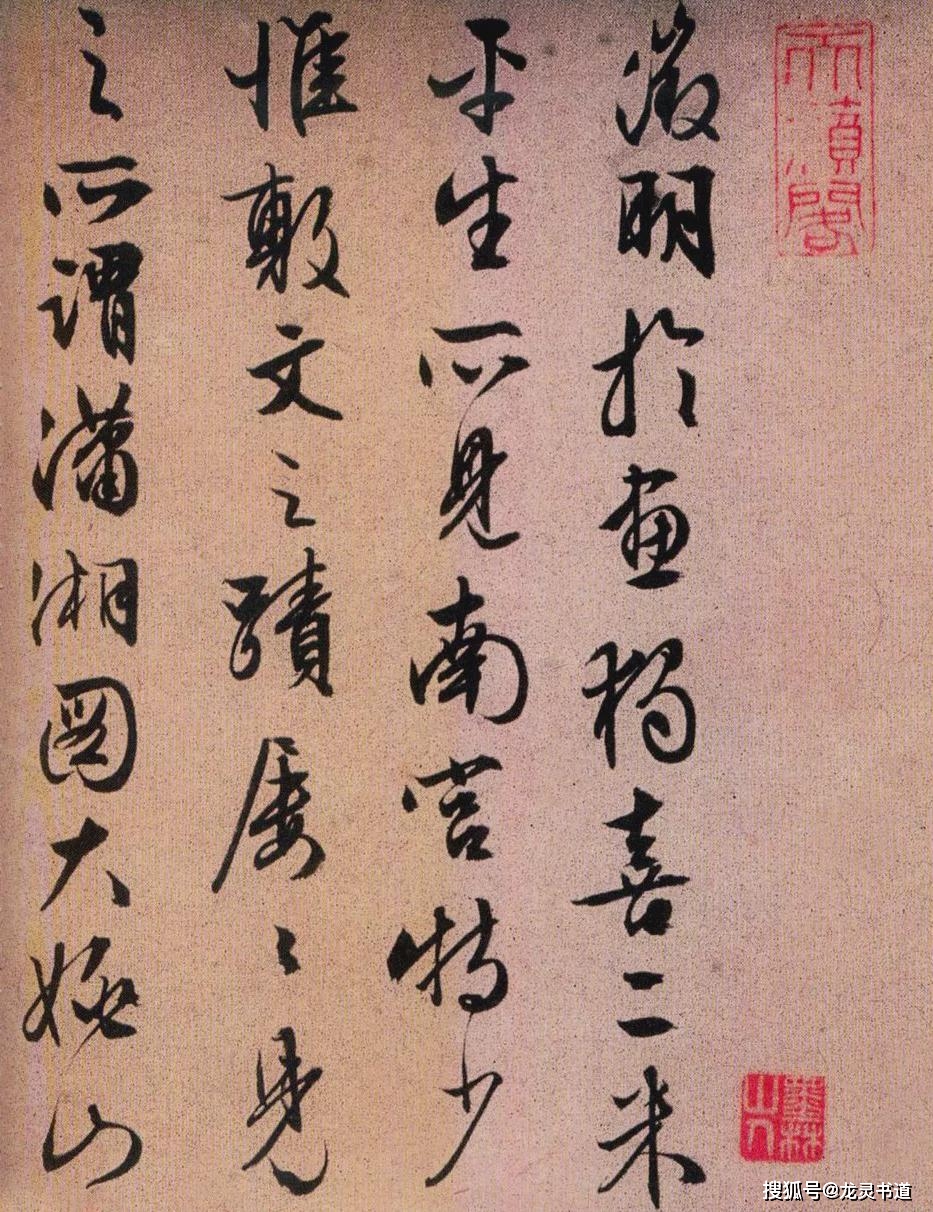 天籟閣
徵明於畫獨喜二米
平生所見南宮特少
惟敷文之蹟屢々見
之所謂瀟湘圖大姚山
墨林山人
搜狐号@龙灵书道